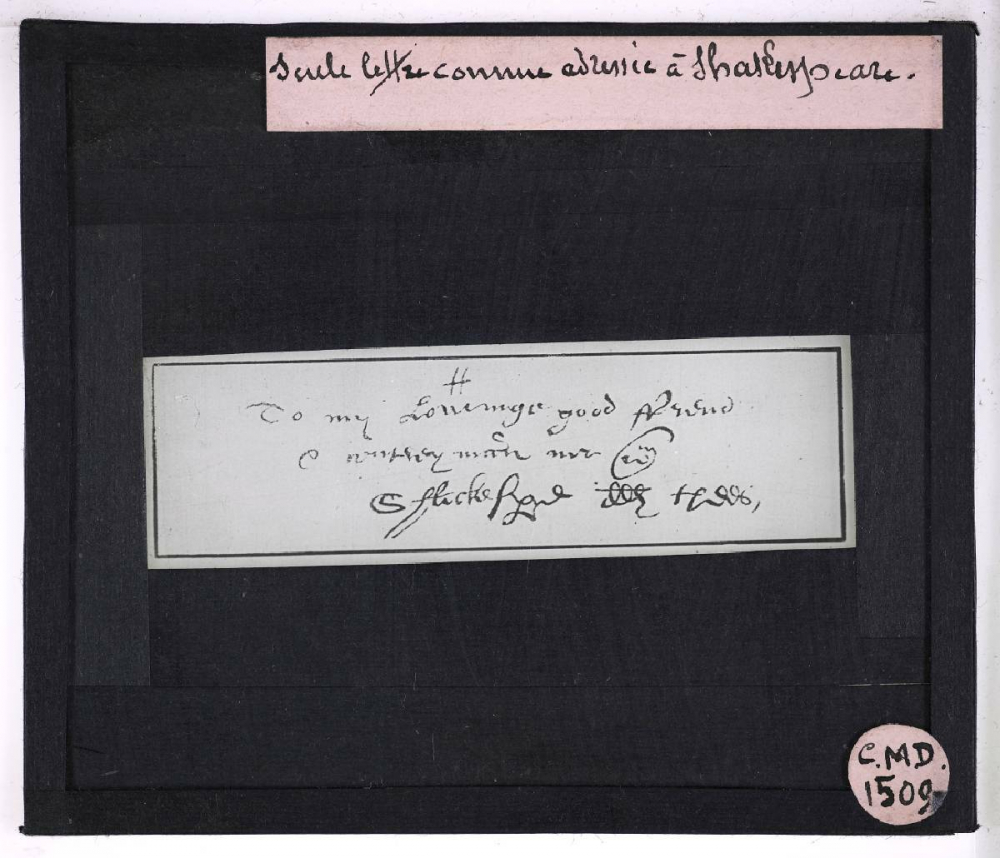 Seule lettre connue adressée à Shakespeare.
To my Loveinge good ffrend
& countreyman mr wm
Shackespere thees,
C.M.D.
1509